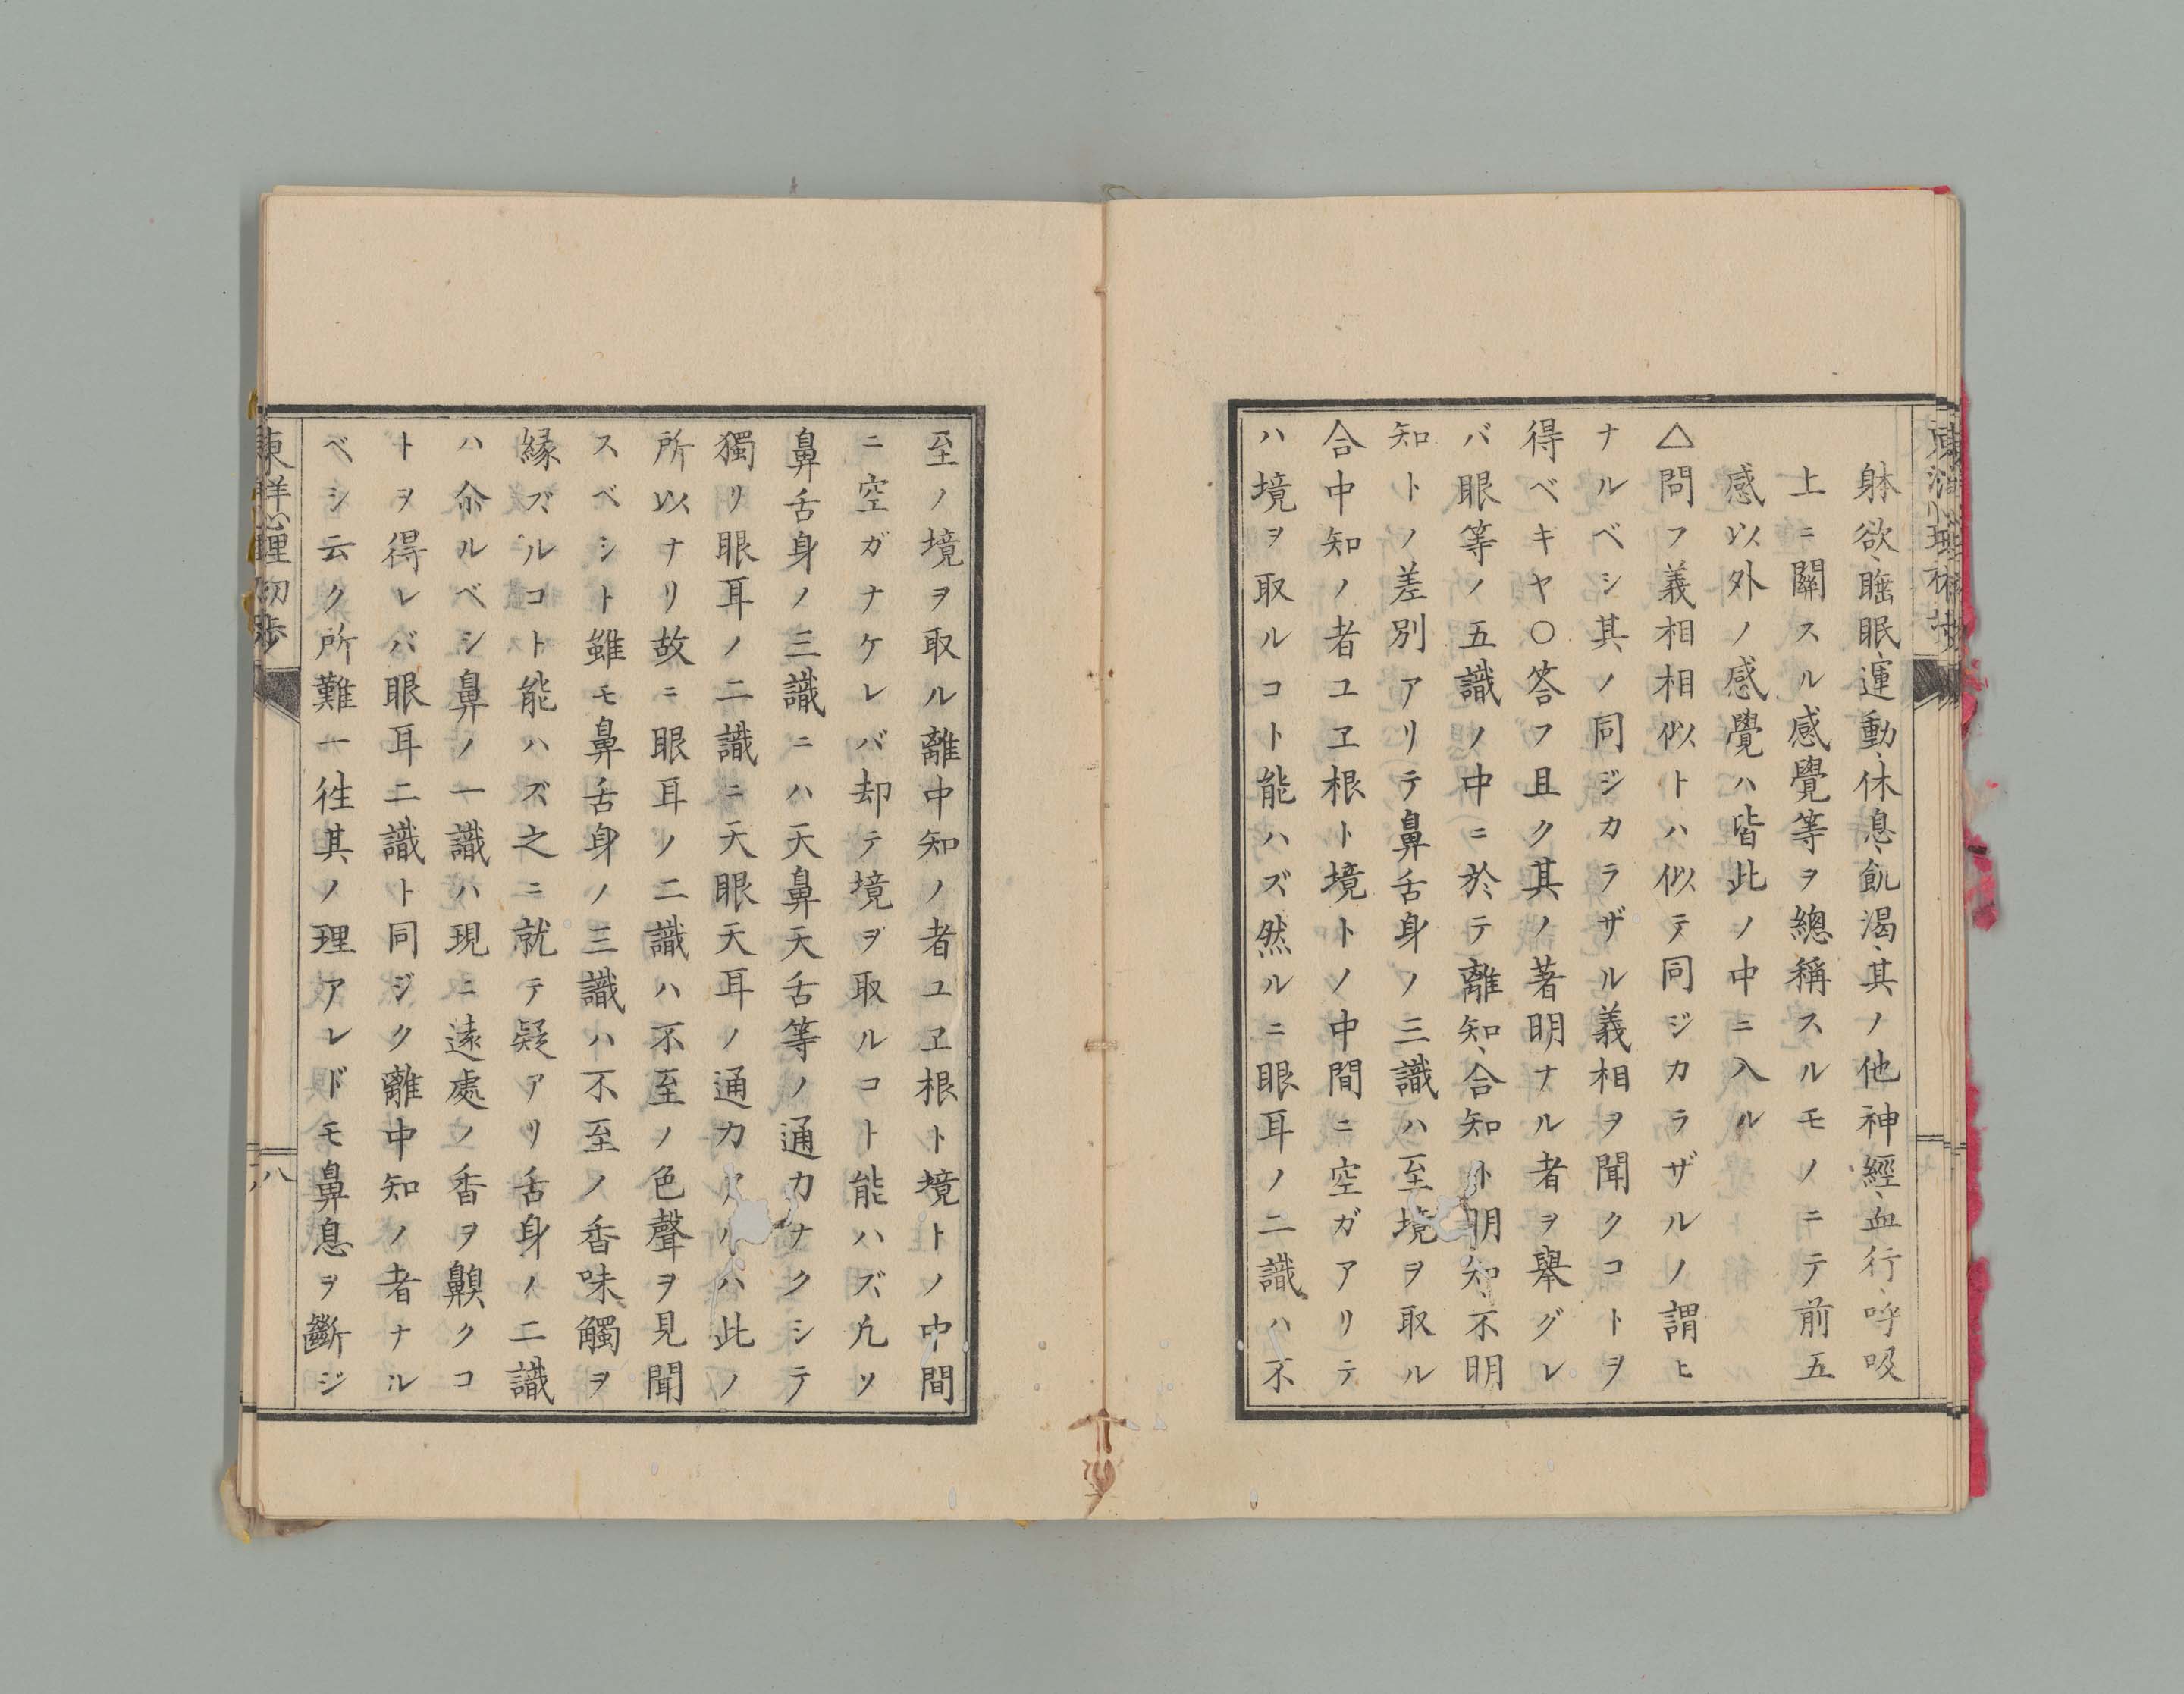 躰欲、睡眠、運動、休息、飢渴、其ノ他神經、血行、呼吸
上ニ關スル感覺等ヲ總稱スルモノニテ前五
感以外ノ感覺ハ皆此ノ中ニ入ル
△問フ義相相似トハ似テ同ジカラザルノ謂ヒ
ナルベシ其ノ同ジカラザル義相ヲ聞クコトヲ
得ベキヤ〇答フ且ク其ノ著明ナル者ヲ舉グレ
バ眼等ノ五識ノ中ニ於テ離知、合知ト明知、不明
知トノ差別アリテ鼻舌身ノ三識ハ至境ヲ取ル
合中知ノ者ユヱ根ト境トノ中間ニ空ガアリテ
ハ境ヲ取ルコト能ハズ然ルニ眼耳ノ二識ハ不
至ノ境ヲ取ル離中知ノ者ユヱ根ト境トノ中間
ニ空ガナケレバ却テ境ヲ取ルコト能ハズ凢ソ
鼻舌身ノ三識ニハ天鼻天舌等ノ通力ナクシテ
獨リ眼耳ノ二識ニ天眼天耳ノ通力アルハ此ノ
所以ナリ故ニ眼耳ノ二識ハ不至ノ色聲ヲ見聞
スベシト雖モ鼻舌身ノ三識ハ不至ノ香味觸ヲ
縁ズルコト能ハズ之ニ就テ疑アリ舌身ノ二識
ハ尒ルベシ鼻ノ一識ハ現ニ遠處ノ香ヲ齅クコ
トヲ得レバ眼耳二識ト同ジク離中知ノ者ナル
ベシ云ク所難一往其ノ理アレドモ鼻息ヲ斷ジ
東洋心理初歩
八